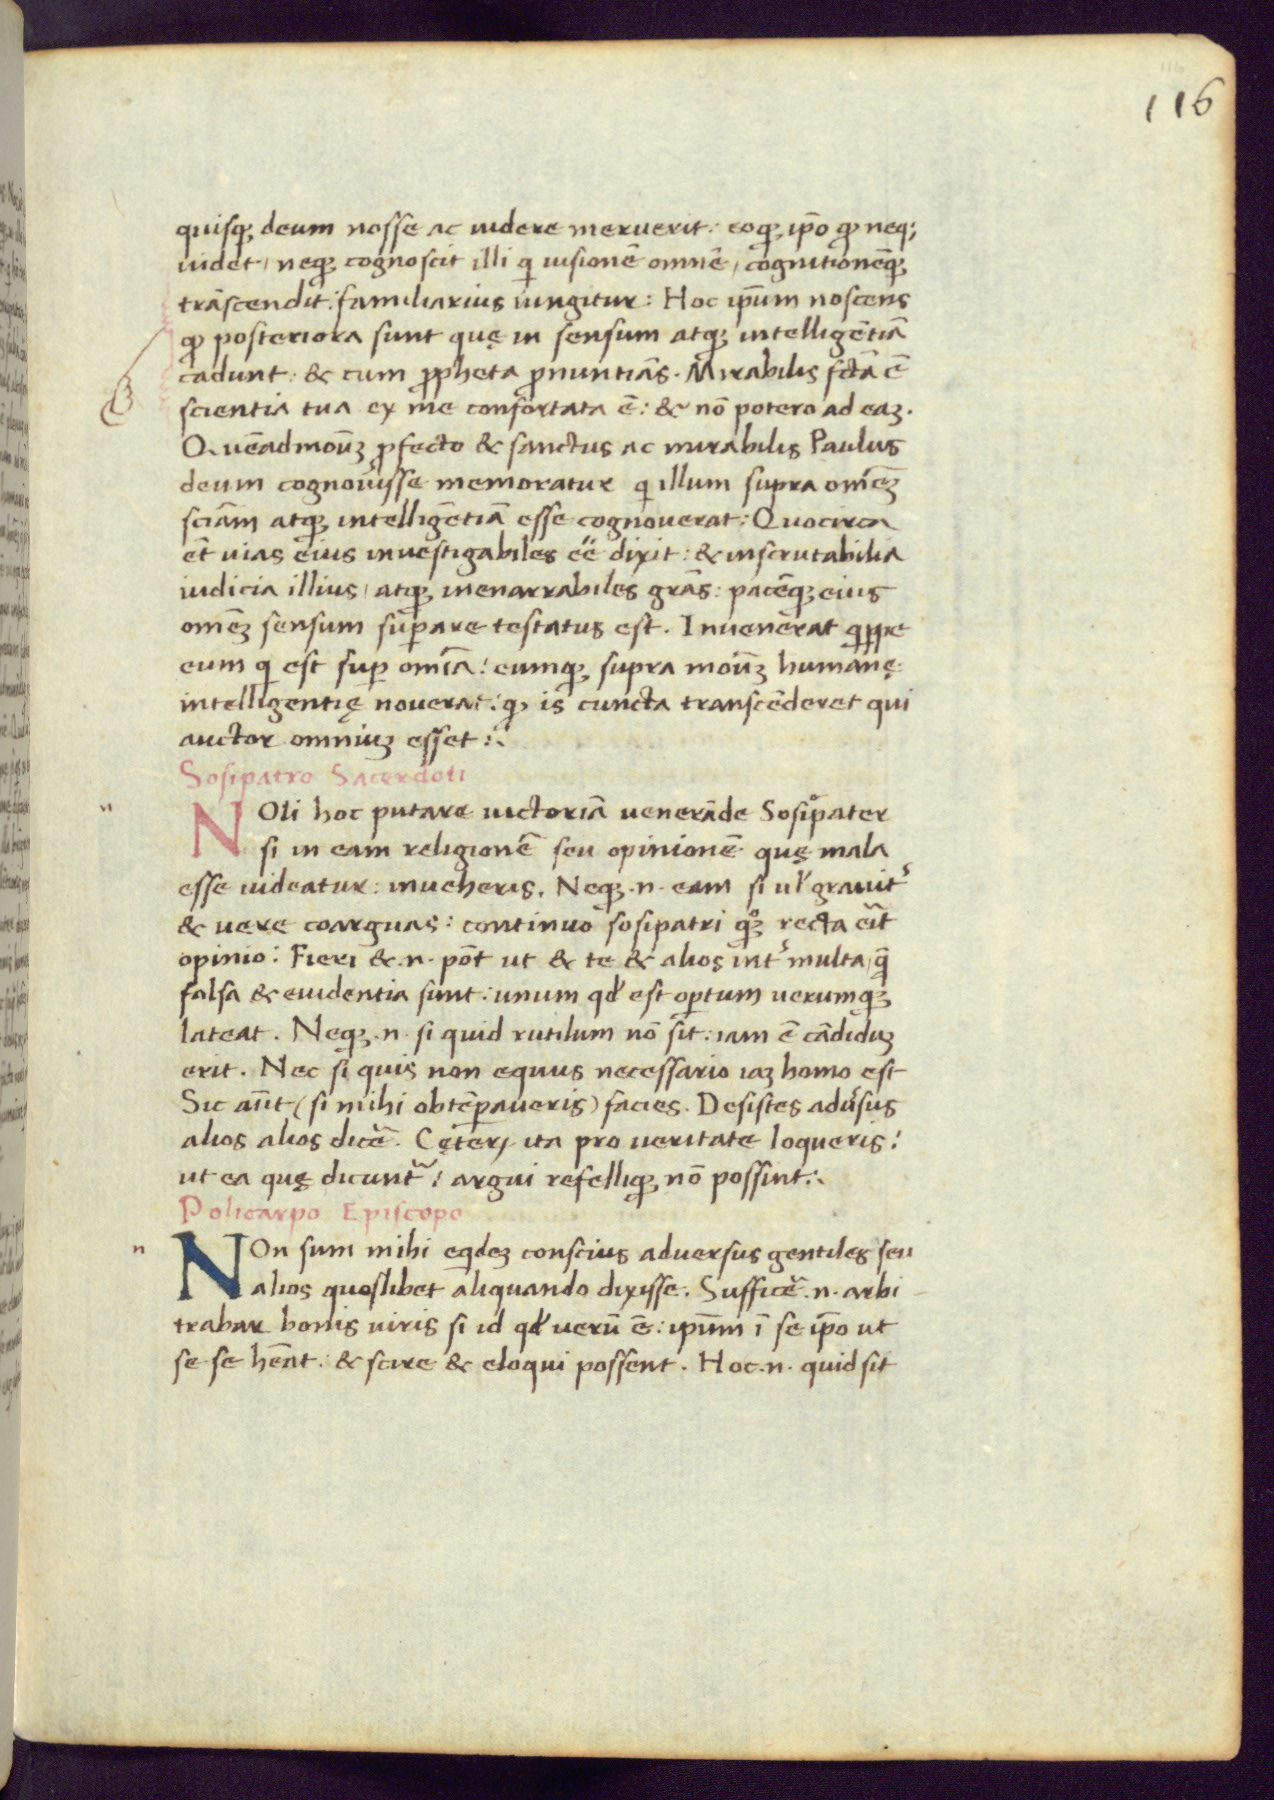 116
quisqꝫ deum nosse ac uidere meruerit: eoqꝫ ip̄o qͦ neqꝫ
uidet, neqꝫ cognoscit illi qͥ uisionē omnē, cognitionēqꝫ
trāscendit: familiarius iungitur: Hoc ip̄um noscens
qͦ posteriora sunt quę in sensum atqꝫ intelligētiā
cadunt: & cum ꝓpheta ꝓnuntiās. Mirabilis fc̄ta ē
scientia tua ex me confortata ē: & nō potero ad eaꝫ.
Quēadmoūꝫ ꝓfecto & sanctus ac mirabilis Paulus
deum cognouisse memoratur qͥ illum supra om̄eꝫ
sciām atqꝫ intelligētiā esse cognouerat: Quocirca
et uias eius inuestigabiles eē dixit: & inscrutabilia
iudicia illius, atqꝫ inenarrabiles grās: pacēqꝫ eius
om̄eꝫ sensum suꝑare testatus est. Inuenerat qͥppe
eum qͥ est suꝑ om̄ia: eumqꝫ supra moūꝫ humanę
intelligentię nouerat: qꝫ is cuncta transcēderet qui
auctor omniuꝫ esset:.
Sosipatro Sacerdoti
n
NOli hoc putare uictoriā uenerāde Sosipater
si in eam religionē seu opinionē quę mala
esse uideatur: inueheris. Neqꝫ .n. eam si ul̓ grauit᷑
& uere coarguas: continuo sosipatri qꝫ recta erit
opinio: Fieri &.n. pōt ut & te & alios int᷑ multa, q̄
falsa & euidentia sunt: unum qd̓ est oꝑtum uerumqꝫ
lateat. Neqꝫ .n. si quid rutilum nō sit: iam ē cādiduꝫ
erit. Nec si quis non equus necessario iaꝫ homo est
Sic aūt (si mihi obtēꝑaueris) facies. Desistes adu᷑sus
alios alios dicē. Cęterꝫ ita pro ueritate loqueris:
ut ea quę dicunt᷑: argui refelliqꝫ nō possint:.
Policarpo Episcopo
n
NOn sum mihi eqͥdeꝫ conscius aduersus gentiles seu
alios quoslibet aliquando dixisse. Sufficē .n. arbi
trabar bonis uiris si id qd̓ uerū ē: ip̄um ī se ip̄o ut
se se hēat: & scire & eloqui possent. Hoc .n. quid sit